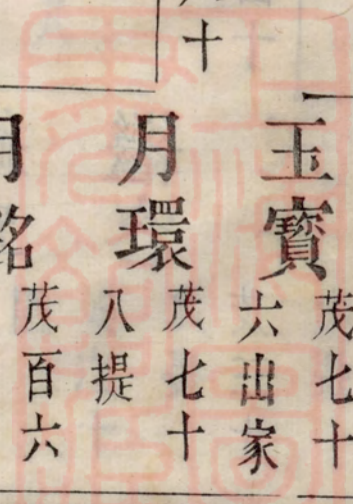 十
玉寶
茂七十
六出家
月環
茂七十
八提
月銘
茂百六